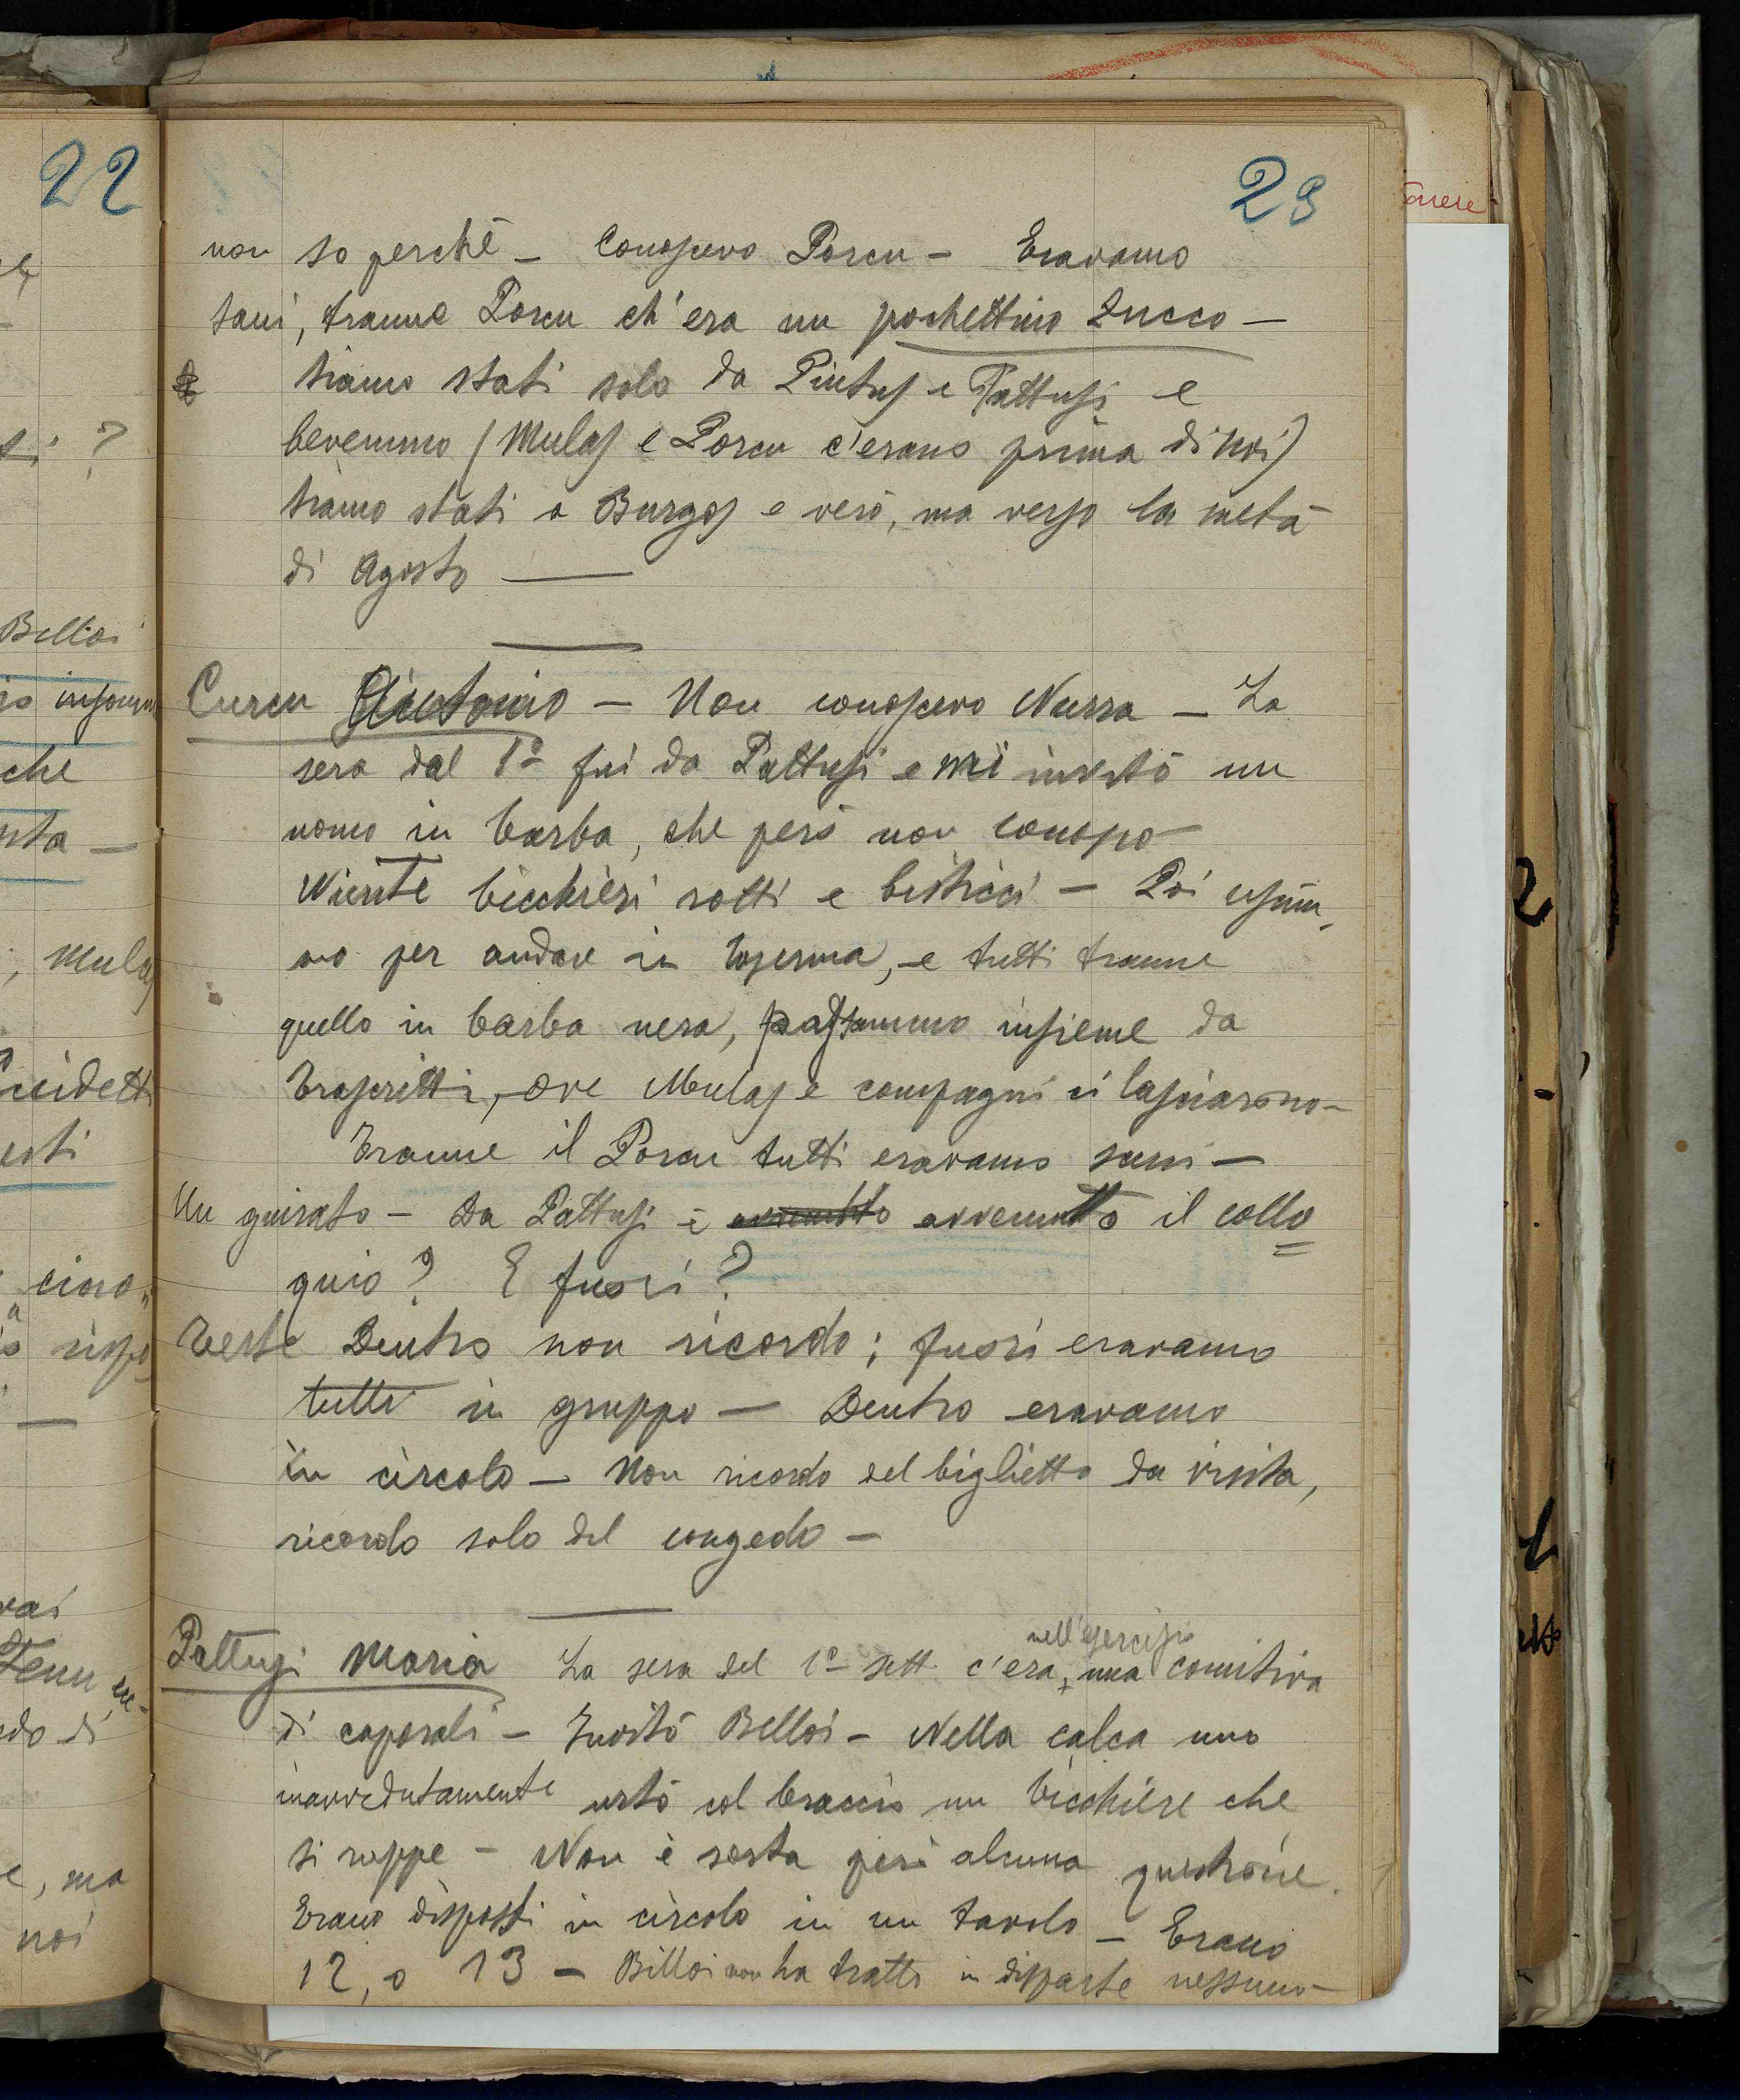 23
non so perchè – Conoscevo Porcu – Eravamo
sani, tranne Porcu ch'era un pochettino zucco –
siamo stati solo da Pintus e Pattusi e
bevemmo (Mulas e Porcu c'erano prima di noi)
siamo stati a Burgos e vero, ma verso la metà
di Agosto —
Curcu Antonio – Non conoscevo Nurra – La
sera del 1º fui da Pattusi e mi invitò un
uomo in barba, che però non conosco
Niente bicchieri rotti e bisticci – Poi uscim„
mo per andare in caserma, e tutti tranne
quello in barba nera, passammo insieme da
Trascritti, ove Mulas e compagni ci lasciarono –
Tranne il Porcu tutti eravamo sani –
Un giurato – Da Pattusi è avvenuto avvenuto il collo
quio? E fuori?
Teste Dentro non ricordo; fuori eravamo
tutti in gruppo – Dentro eravamo
in circolo – Non ricordo del biglietto da visita,
ricordo solo del congedo –
Pattusi Maria La sera del 1º sett. c'era + nell'esercizio una comitiva
di caporali – Invitò Belloi – Nella calca uno
inavvedutamente urtò col braccio un bicchiere che
si ruppe – Non è sorta però alcuna questione.
Erano disposti in circolo in un tavolo – Erano
12, o 13 – Billoi non ha tratto in disparte nessuno –
22
si ?
Belloi
che
, Mulas
esti
Tenu
e, ma
noi